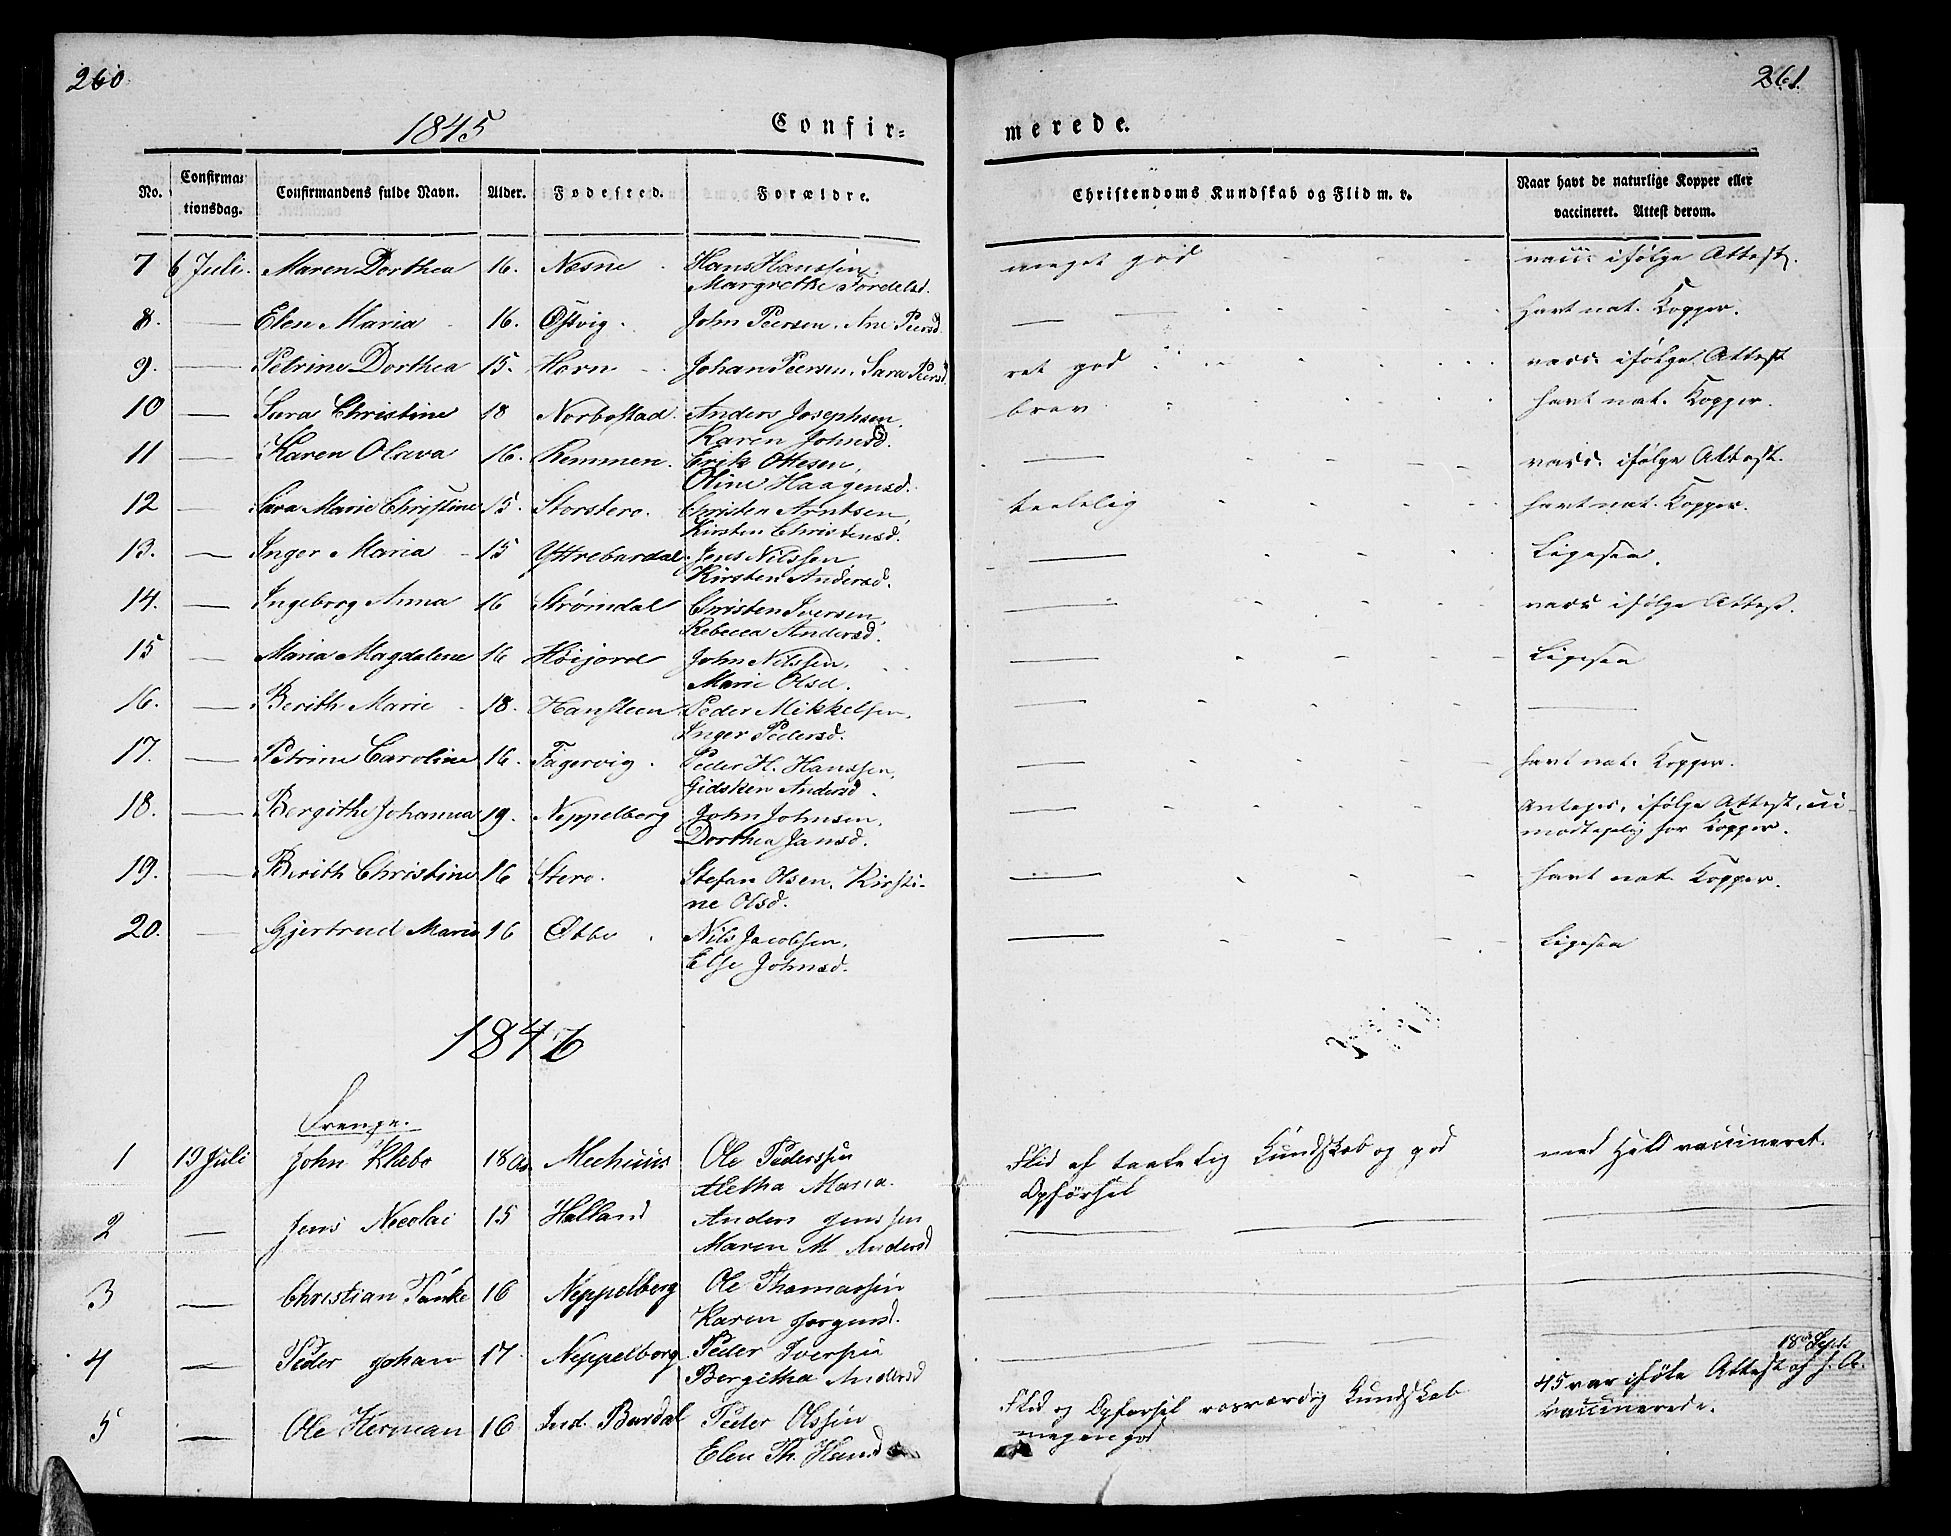 260
261
1845
Confir=
merede.
No. Confirma= tionsdag. Confirmandens fulde Navn. Alder. Fødested. Forældre. Christendoms Kundskab og Flid m. v. Naar havt de naturlige Kopper eller vaccineret. Attest derom.
7 6 Juli. Maren Dorthea 16. Næsne Hans Hanssen, meget god vacc. ifølge Attest.
Margrethe Tordelsd.
8. — Elen Maria 16. Østvig. John Peersen. Ane Peersd. — — havt nat. Kopper.
9. — Petrine Dorthea 15. Horn Johan Peersen. Sara Peersd. ret god vacc. ifølge Attest
10 — Sara Christine 18 Norbostad. Anders Josephsen, brav havt nat. Kopper.
Karen Johnsd.
11 — Karen Olava 16. Remmen. Erik Ottesen, — vacc. ifølge Attest.
Oline Haagensd.
12 — Sara Marie Christine 15. Storstero. Christen Arntsen, taalelig havt nat. Kopper.
Kirsten Christensd.
13. — Inger Maria 15 Yttrebardal. Jens Nilssen — Ligesaa.
Kirsten Andersd.
14. — Ingeborg Anna 16 Strømdal Christen Iversen, — vacc ifølge Attest.
Rebecca Andersd.
15 — Maria Magdalene 16 Høijord John Nilssen, — Ligesaa
Marie Olsd.
16. — Berith Marie 18. Hansteen Peder Mikkelsen, — —
Inger Pedersd.
17. — Petrine Caroline 16. Fagervig. Peder H. Hanssen, — havt nat. Kopper.
Gidsken Andersd.
18. — Bergithe Johanna 19. Neppelberg John Johnsen, — Antages, ifølge Attest, ui-
Dorthea Jansd. modtagelig for Kopper.
19. — Berith Christine 16 Stero. Stefan Olsen, Kirsti- — havt nat. Kopper.
ne Olsd.
20. — Gjertrud Marie 16 Øbbe Nils Jacobsen, — Ligesaa
Else Johnsd.
1846
Drenge.
1 19 Juli John Klæbo 18 Mechuus Ole Pederssen Flid af taalelig Kundskab og god med Held vaccineret.
Aletha Maria. Opførsel
2 — Jens Nicolai 15 Halland Anders Jenssen — — —
Maren M. Andersd
3 — Christian Tanke 16 Neppelberg Ole Thomassen — —
Karen Jørgensd.
4 — Peder Johan 17. Neppelberg. Peder Iversen — 18 Sept.
Bergitha Andersd 45 var ifølge Attest af s. A.
5 — Ole Herman 16 Ind. Bardal Peder Olssen Flid og Opførsel rosværdig Kundskab vaccinerede.
Elen Th. Hansd megen god